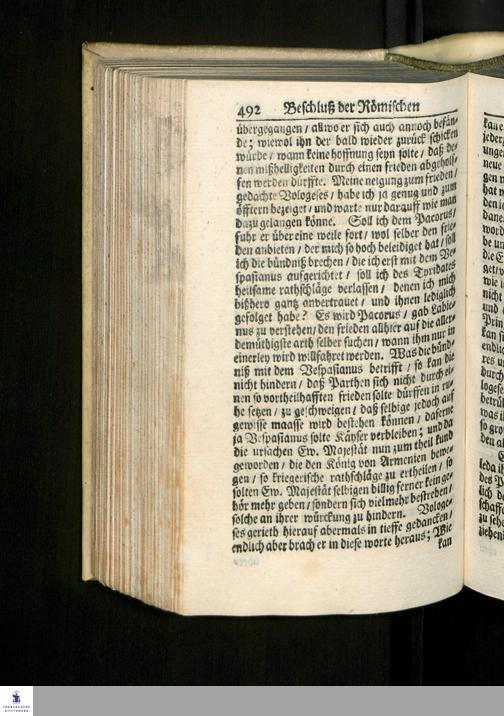 492 Beschluß der Römischen
übergegangen / allwo er sich auch annoch befän-
de; wiewol ihn der bald wieder zurück schicken
würde / wann keine hoffnung seyn solte / daß de-
nen mißhelligkeiten durch einen frieden abgeholf-
fen werden dürffte. Meine neigung zum frieden /
gedachte Vologeses / habe ich ja genug und zum
öfftern bezeiget / und warte nur darauff wie man
dazu gelangen könne. Soll ich dem Pacorus /
fuhr er über eine weile fort / wol selber den frie-
den anbieten / der mich so hoch beleidiget hat / soll
ich die bündniß brechen / die ich erst mit dem Ve-
spasianus aufgerichtet / soll ich des Tyridates
heilsame rathschläge verlassen / denen ich mich
bißhero gantz anvertrauet / und ihnen lediglich
gefolget habe? Es wird Pacorus / gab Labie-
nus zu verstehen / den frieden allhier auf die aller-
demüthigste arth selber suchen / wann ihm nur in
einerley wird willfahret werden. Was die bünd-
niß mit dem Vespasianus betrifft / so kan die
nicht hindern / daß Parthen sich nicht durch ei-
nen so vortheilhafften frieden solte dürffen in ru-
he setzen / zu geschweigen / daß selbige jedoch auf
gewisse maasse wird bestehen können / daferne
ja Vespasianus solte Käyser verbleiben; und da
die ursachen Ew. Majestät nun zum theil kund
geworden / die den König von Armenien bewe-
gen / so kriegerische rathschläge zu ertheilen / so
solten Ew. Majestät selbigen billig ferner kein ge-
hör mehr geben / sondern sich vielmehr bestreben /
solche an ihrer würckung zu hindern. Vologe-
ses gerieth hierauf abermals in tieffe gedancken /
endlich aber brach er in diese worte heraus; Wie
kan
FRANCKESCHE
STIFTUNGEN